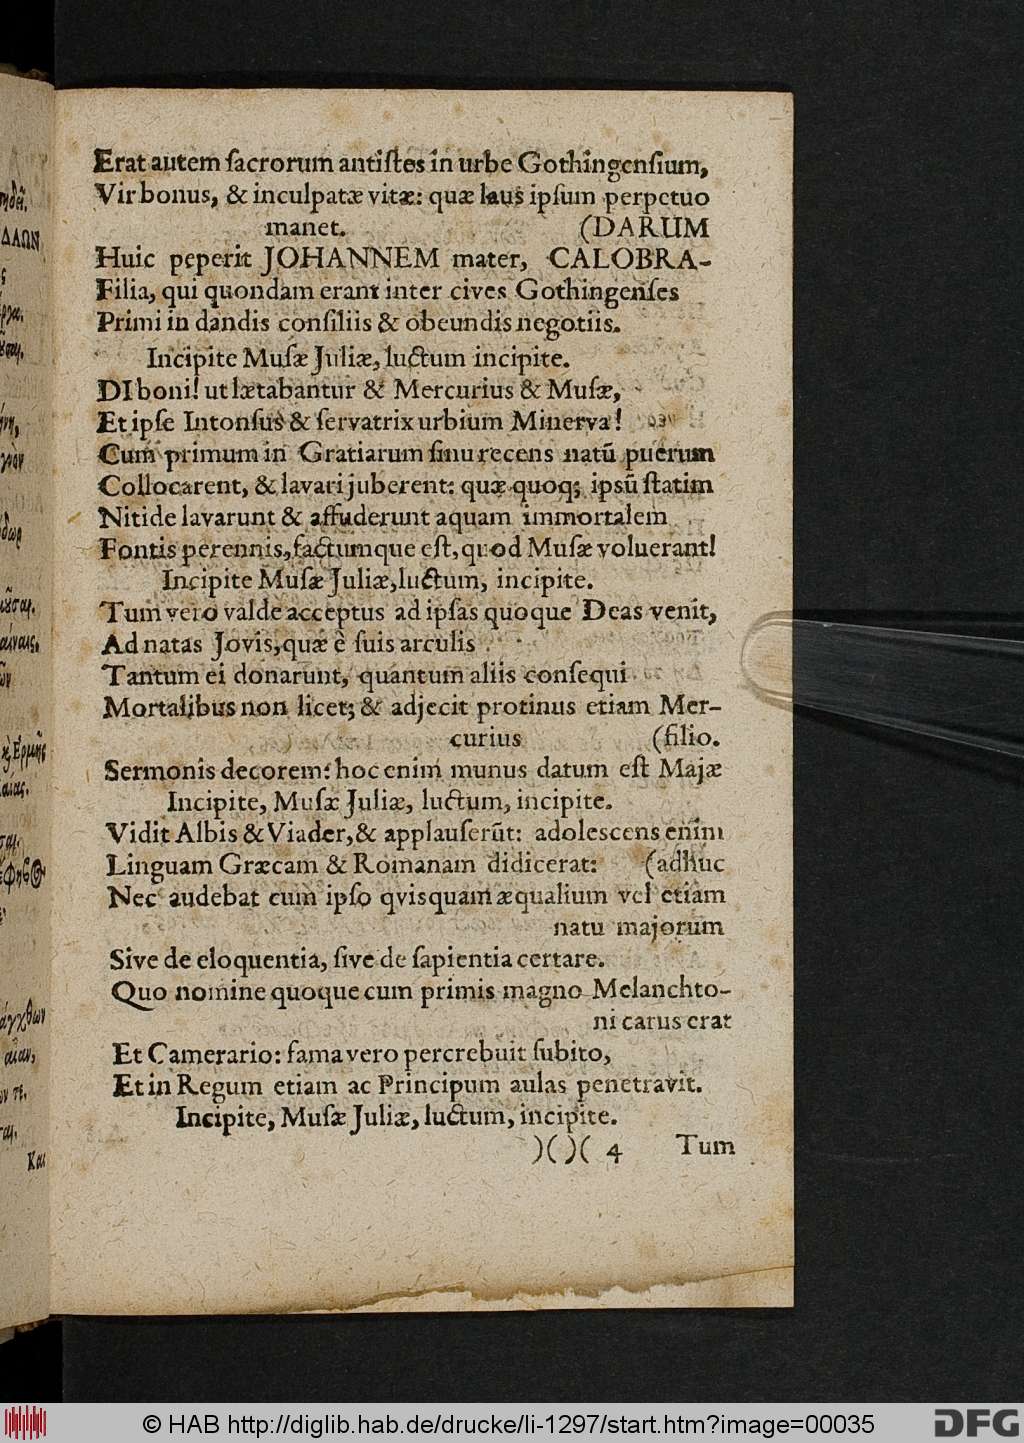 Erat autem ſacrorum antiſtes in urbe Gothingenſium,
Vir bonus, & inculpatæ vitæ: quæ laus ipſum perpetuo
manet. (DARUM
Huic peperit JOHANNEM mater, CALOBRA-
Filia, qui quondam erant inter cives Gothingenſes
Primi in dandis conſiliis & obeundis negotiis.
Incipite Muſæ Juliæ, luctum incipite.
DI boni! ut lætabantur & Mercurius & Muſæ,
Et ipſe Intonſus & ſervatrix urbium Minerva!
Cum primum in Gratiarum ſinu recens natũ puerum
Collocarent, & lavari juberent: quæ quoq; ipsũ ſtatim
Nitide lavarunt & affuderunt aquam immortalem
Fontis perennis, factumque eſt, quod Muſæ voluerant!
Incipite Muſæ Juliæ, luctum, incipite.
Tum vero valde acceptus ad ipſas quoque Deas venit,
Ad natas Jovis, quæ è ſuis arculis
Tantum ei donarunt, quantum aliis conſequi
Mortalibus non licet; & adjecit protinus etiam Mer-
curius (filio.
Sermonis decorem: hoc enim munus datum eſt Majæ
Incipite, Muſæ Juliæ, luctum, incipite.
Vidit Albis & Viader, & applauſerũt: adolescens enim
Linguam Græcam & Romanam didicerat: (adhuc
Nec audebat cum ipſo qvisquam æqualium vel etiam
natu majorum
Sive de eloquentia, ſive de ſapientia certare.
Quo nomine quoque cum primis magno Melanchto-
ni carus erat
Et Camerario: fama vero percrebuit ſubito,
Et in Regum etiam ac Principum aulas penetravit.
Incipite, Muſæ Juliæ, luctum, incipite.
)( )( 4 Tum
© HAB http://diglib.hab.de/drucke/li-1297/start.htm?image=00035
DFG